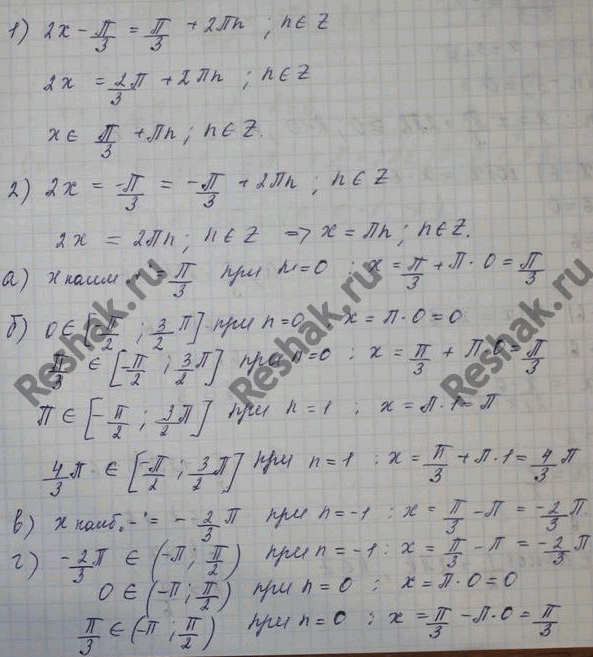 1) 2x - π/3 = π/3 + 2πn ; n∈Z
2x = 2/3 π + 2πn ; n∈Z
x∈ π/3 + πn ; n∈Z.
2) 2x = -π/3 = -π/3 + 2πn ; n∈Z
2x = 2πn ; n∈Z => x = πn ; n∈Z.
а) x наим.+ = π/3 при n=0 : x = π/3 + π·0 = π/3
б) 0∈[-π/2 ; 3/2 π] при n=0 : x = π·0 = 0
π/3 ∈ [-π/2 ; 3/2 π] при n=0 : x = π/3 + π·0 = π/3
π ∈ [-π/2 ; 3/2 π] при n=1 : x = π·1 = π
4/3 π ∈ [-π/2 ; 3/2 π] при n=1 : x = π/3 + π·1 = 4/3 π
в) x наиб.„-" = - 2/3 π при n=-1 : x = π/3 - π = - 2/3 π
г) - 2/3 π ∈ (-π ; π/2) при n=-1 : x = π/3 - π = - 2/3 π
0∈(-π ; π/2) при n=0 : x = π·0 = 0
π/3 ∈ (-π ; π/2) при n=0 : x = π/3 - π·0 = π/3
Reshak.ru
Reshak.ru
Reshak.ru